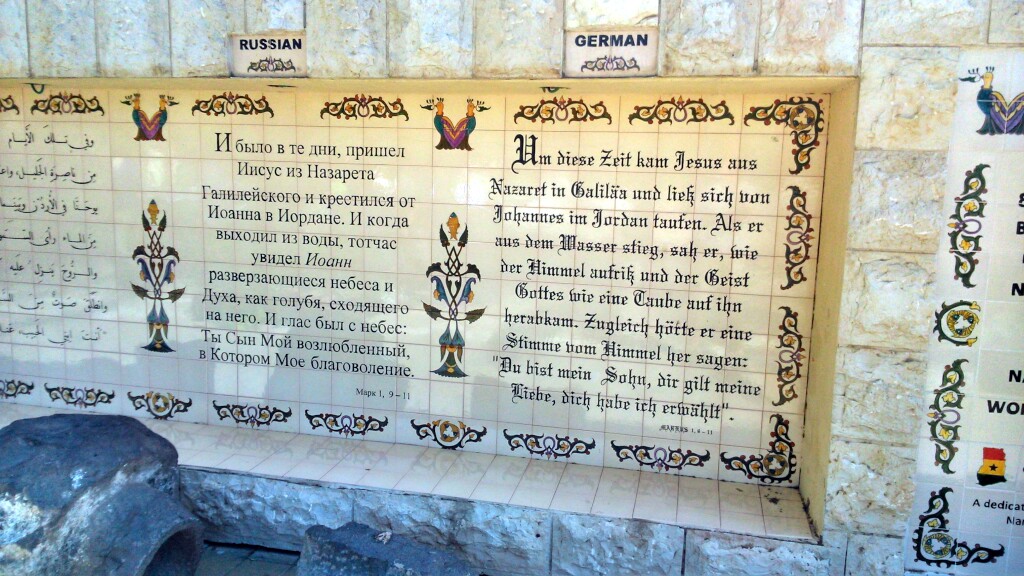 RUSSIAN
GERMAN
وفي تلك الأيام
من ناصرة الجليل،
يوحنا في الأردن
من الماء رأى
والروح ينزل عليه
وانطلق صوت من
"أنت ابني الحبيب،
И было в те дни, пришел
Иисус из Назарета
Галилейского и крестился от
Иоанна в Иордане. И когда
выходил из воды, тотчас
увидел Иоанн
разверзающиеся небеса и
Духа, как голубя, сходящего
на него. И глас был с небес:
Ты Сын Мой возлюбленный,
в Котором Мое благоволение.
Марк 1, 9 – 11
Um diese Zeit kam Jesus aus
Nazaret in Galiläa und ließ sich von
Johannes im Jordan taufen. Als er
aus dem Wasser stieg, sah er, wie
der Himmel aufriß und der Geist
Gottes wie eine Taube auf ihn
herabkam. Zugleich hötte er eine
Stimme vom Himmel her sagen:
"Du bist mein Sohn, dir gilt meine
Liebe, dich habe ich erwählt".
MARKUS 1, 9 – 11
A